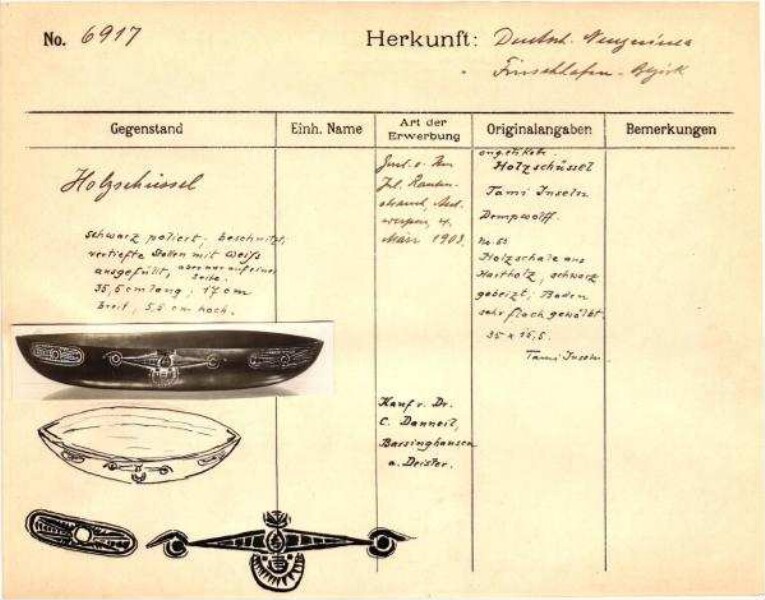 No. 6917
Herkunft: Deutsch. Neuguinea
Finschhafen-Bezirk
Gegenstand
Einh. Name
Art der Erwerbung
Originalangaben
Bemerkungen
Holzschüssel
schwarz poliert; beschnitzt,
vertiefte Stellen mit Weiß
ausgefüllt, aber nur auf einer
Seite.
35,5 cm lang; 17 cm
breit; 5,5 cm hoch.
März 1903.
Kauf v. Dr.
C. Danneil,
Barsinghausen
a. Deister.
Holzschüssel
Tami Inseln
Dempwolff.
Holzschale aus
Hartholz, schwarz
gebeizt; Boden
sehr flach gewölbt.
35 x 16,5.
Tami Inseln.